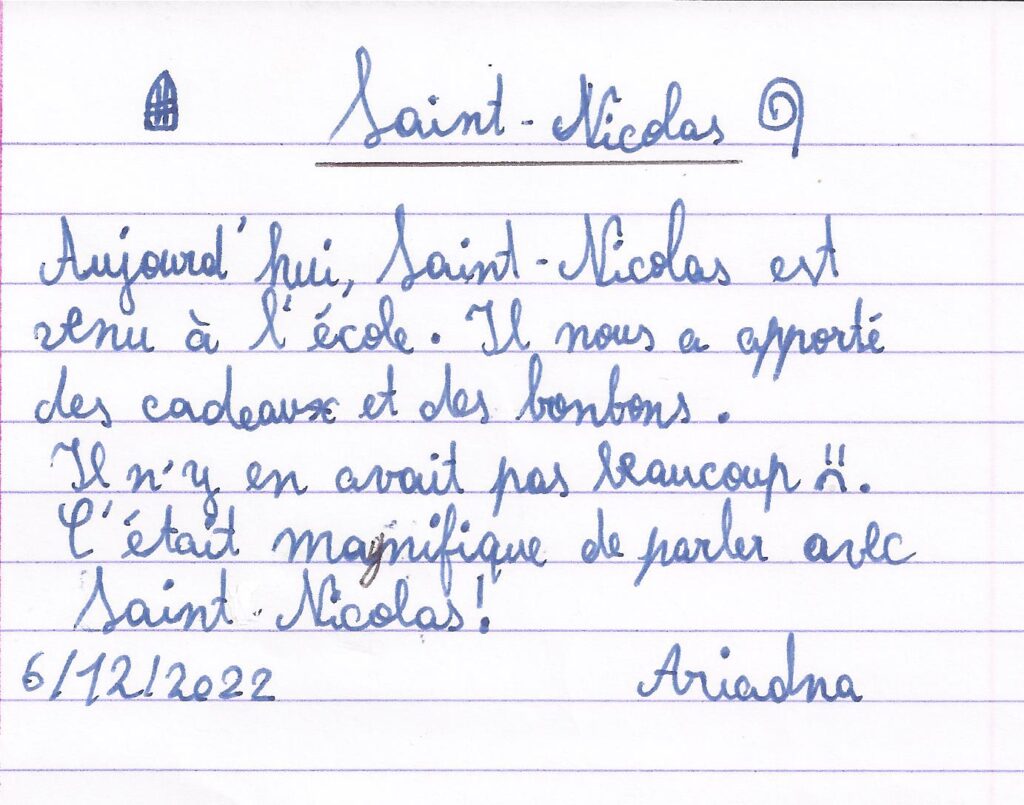 Saint-Nicolas
Aujourd'hui, Saint-Nicolas est
venu à l'école. Il nous a apporté
des cadeaux et des bonbons.
Il n'y en avait pas beaucoup :(.
C'était magnifique de parler avec
Saint-Nicolas!
6/12/2022 Ariadna